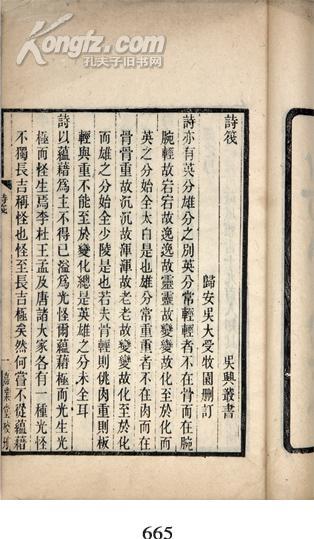 Kongfz.com
孔夫子旧书网
詩筏
吳興叢書
歸安吳大受牧園刪訂
詩亦有英分雄分之別英分常輕輕者不在骨而在腕
腕輕故宕宕故逸逸故靈靈故變變故化至於化而
英之分始全太白是也雄分常重重者不在肉而在
骨骨重故沉沉故渾渾故老老故變變故化至於化
而雄之分始全少陵是也若夫骨輕則佻肉重則板
輕與重不能至於變化總是英雄之分未全耳
詩以蘊藉為主不得已溢為光怪爾蘊藉極而光生光
極而怪生焉李杜王孟及唐諸大家各有一種光怪
不獨長吉稱怪也怪至長吉極矣然何嘗不從蘊藉
詩筏
一
嘉業堂校刊
665